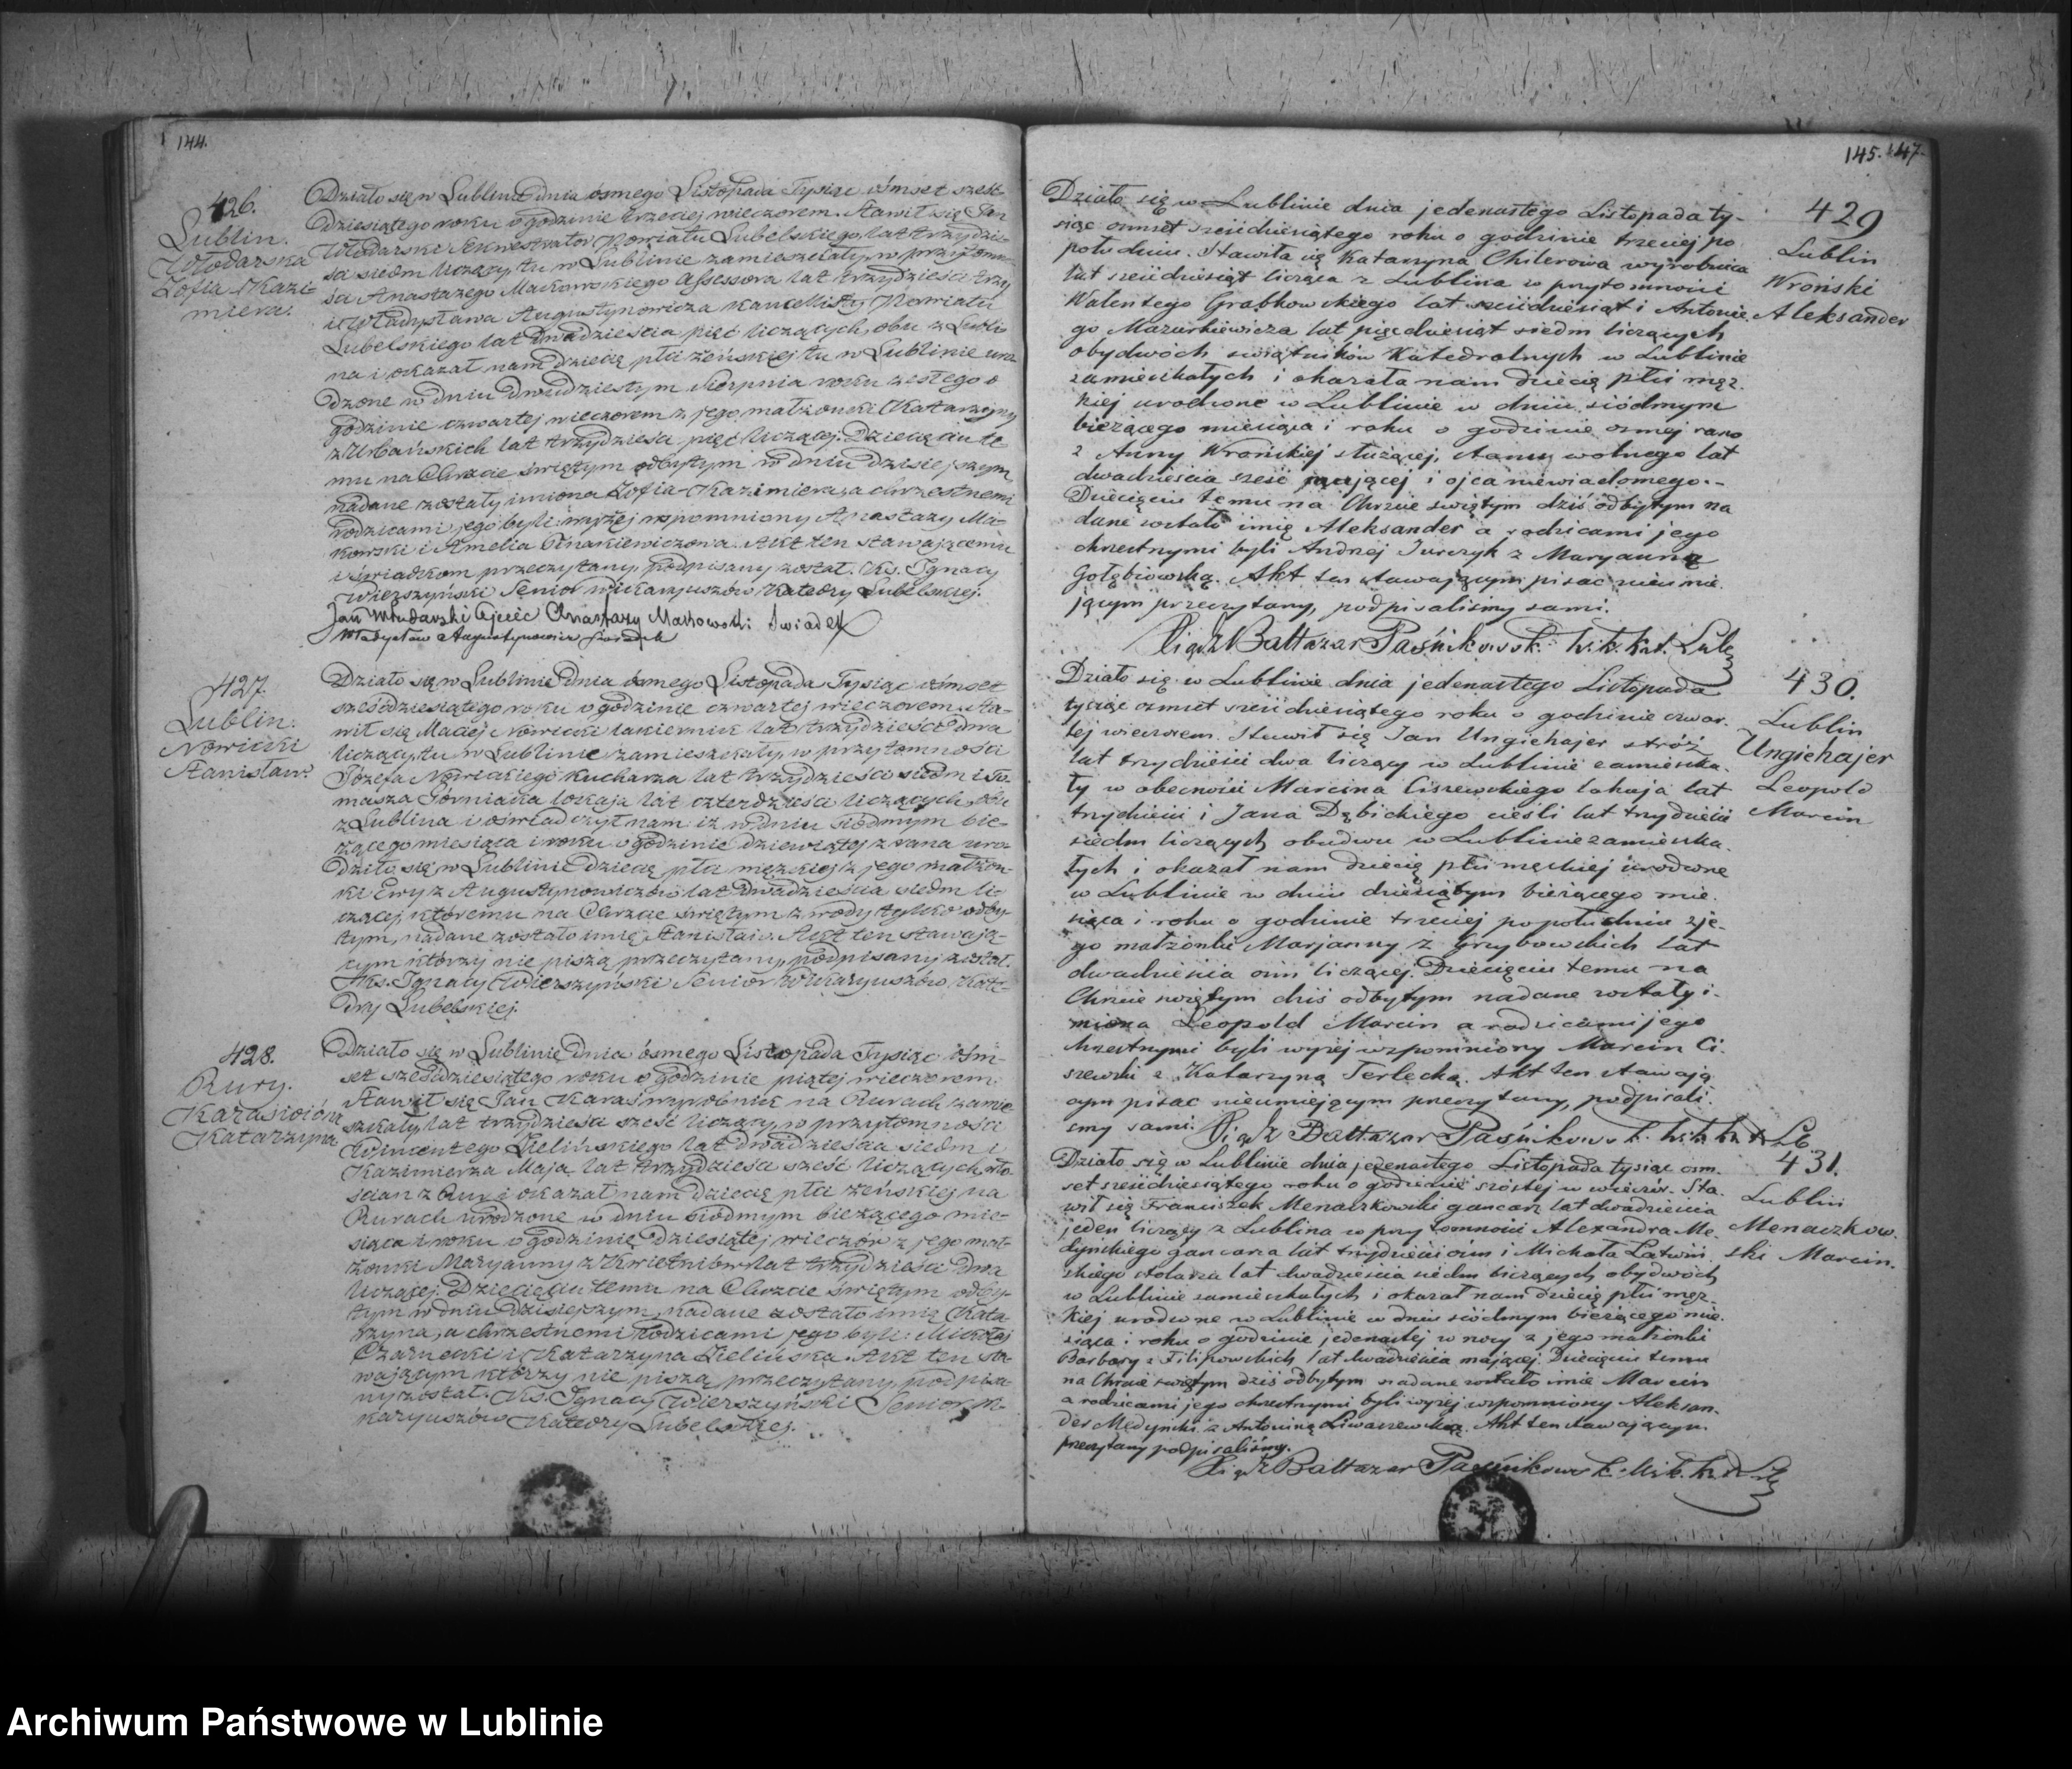 144.
426.
Lublin.
Włodarska
Zofia Kazi-
miera.
Działo się w Lublinie dnia ósmego Listopada Tysiąc ośmset sześć-
dziesiątego roku o godzinie trzeciej wieczorem. Stawił się Jan
Włodarski Sekwestrator Powiatu Lubelskiego, lat trzydzie-
ści siedm liczący, tu w Lublinie zamieszkały, w przytomno-
ści Anastazego Makowskiego Assessora lat trzydzieści trzy
i Władysława Augustynowicza Kancellisty Powiatu
Lubelskiego lat dwadzieścia pięć liczących, obu z Lubli-
na i okazał nam dziecię płci żeńskiej tu w Lublinie uro-
dzone w dniu dwudziestym Sierpnia roku zeszłego o
godzinie czwartej wieczorem z jego małżonki Katarzyny
z Urbańskich lat trzydzieści pięć liczącej. Dziecięciu te-
mu na Chrzcie świętym odbytym w dniu dzisiejszym,
nadane zostały imiona Zofia-Kazimiera, a chrzestnemi
rodzicami jego byli: wyżej wspomniony Anastazy Ma-
kowski i Amelia Ptnakiewiczowa. Akt ten stawającemu
i świadkom przeczytany, podpisany został. Ks. Ignacy
Wierszyński Senior Wikaryuszów Katedry Lubelskiej.
Jan Włodarski Ojciec Anastazy Makowski Swiadek
Władysław Augustynowicz świadek
427.
Lublin.
Nowicki
Stanisław.
Działo się w Lublinie dnia ósmego Listopada Tysiąc ośmset
sześćdziesiątego roku o godzinie czwartej wieczorem. Sta-
wił się Maciej Nowicki lakiernik lat trzydzieści dwa
liczący, tu w Lublinie zamieszkały, w przytomności
Józefa Nowickiego kucharza lat trzydzieści siedm i To-
masza Górniaka lokaja lat czterdzieści liczących, obu
z Lublina i oświadczył nam: iż w dniu siódmym bie-
żącego miesiąca i roku o godzinie dziewiątej z rana uro-
dziło się w Lublinie dziecię płci męzkiej z jego małżon-
ki Ewy z Augustynowiczów lat dwadzieścia siedm li-
czącej, któremu na Chrzcie świętym z wody tylko odby-
tym, nadane zostało imię Stanisław. Akt ten stawają-
cym którzy nie piszą przeczytany, podpisany został.
Ks. Ignacy Wierszyński Senior Wikaryuszów Kate-
dry Lubelskiej.
428.
Rury.
Karasiówna
Katarzyna
Działo się w Lublinie dnia ósmego Listopada Tysiąc ośm-
set sześćdziesiątego roku o godzinie piątej wieczorem.
Stawił się Jan Karaś wyrobnik na Rurach zamie-
szkały, lat trzydzieści sześć liczący, w przytomności
Wincentego Zielińskiego lat dwadzieścia siedm i
Kazimierza Maja lat trzydzieści sześć liczących wło-
ścian z Rur i okazał nam dziecię płci żeńskiej na
Rurach urodzone w dniu siódmym bieżącego mie-
siąca i roku o godzinie dziesiątej wieczór z jego mał-
żonki Maryanny z Kwietniów lat trzydzieści dwa
liczącej. Dziecięciu temu na Chrzcie świętym odby-
tym w dniu dzisiejszym, nadane zostało imię Kata-
rzyna, a chrzestnemi rodzicami jego byli: Mikołaj
Czarnecki i Katarzyna Zielińska. Akt ten sta-
wającym którzy nie piszą przeczytany, podpisa-
ny został. Ks. Ignacy Wierszyński Senior Wi-
karyuszów Katedry Lubelskiej.
145. 147.
429
Lublin
Wroński
Aleksander
Działo się w Lublinie dnia jedenastego Listopada ty-
siąc osmset sześćdziesiątego roku o godzinie trzeciej po
południu. Stawiła się Katarzyna Chilerowa wyrobnica
lat sześćdziesiąt licząca z Lublina w przytomności
Walentego Grabkowskiego lat sześćdziesiąt i Antonie-
go Mazurkiewicza lat pięćdziesiąt siedm liczących
obydwóch świątników Katedralnych w Lublinie
zamieszkałych i okazała nam dziecię płci męz-
kiej urodzone w Lublinie w dniu siódmym
bieżącego miesiąca i roku o godzinie osmej rano
z Anny Wrońskiej służącej, stanu wolnego lat
dwadzieścia sześć mającej i ojca niewiadomego.-
Dziecięciu temu na Chrzcie świętym dziś odbytym na
dane zostało imię Aleksander a rodzicami jego
chrzestnymi byli Andrzej Jurczyk z Maryanną
Gołębiowską. Akt ten stawającym pisać nieumie-
jącym przeczytany, podpisaliśmy sami.
Xiądz Baltazar Paśnikowsk. Wik. Kat. Lube
430.
Lublin
Ungiehajer
Leopold
Marcin
Działo się w Lublinie dnia jedenastego Listopada
tysiąc osmset sześćdziesiątego roku o godzinie czwar-
tej wieczorem. Stawił się Jan Ungiehajer stróż
lat trzydzieści dwa liczący w Lublinie zamieszka-
ły w obecności Marcina Ciszewskiego lokaja lat
trzydzieści i Jana Dębickiego cieśli lat trzydzieści
siedm liczących obudwu w Lublinie zamieszka-
łych i okazał nam dziecię płci męskiej urodzone
w Lublinie w dniu dziesiątym bieżącego mie-
siąca i roku o godzinie trzeciej po południu z je-
go małżonki Marjanny z Grzybowskich lat
dwadzieścia osm liczącej. Dziecięciu temu na
Chrzcie świętym dziś odbytym nadane zostały i-
miona Leopold Marcin a rodzicami jego
chrzestnymi byli wyżej wspomniony Marcin Ci-
szewski z Katarzyną Terlecką. Akt ten stawają
cym pisać nieumiejącym przeczytany, podpisali-
śmy sami. Xiądz Baltazar Paśnikowsk. Wik. Kat Lb
431.
Lublin
Menaczkow-
ski Marcin.
Działo się w Lublinie dnia jedenastego Listopada tysiąc osm-
set sześćdziesiątego roku o godzinie szóstej w wieczór. Sta-
wił się Franciszek Menaczkowski garncarz lat dwadzieścia
jeden liczący z Lublina w przytomności Alexandra Me-
dyńskiego garncarza lat trzydzieści osm i Michała Łatwiń-
skiego stolarza lat dwadzieścia siedm liczących obydwóch
w Lublinie zamieszkałych i okazał nam dziecię płci męz-
kiej urodzone w Lublinie w dniu siódmym bieżącego mie-
siąca i roku o godzinie jedenastej w nocy z jego małżonki
Barbary z Filipowskich lat dwadzieścia mającej. Dziecięciu temu
na Chrzcie świętym dziś odbytym nadane zostało imie Marcin
a rodzicami jego chrzestnymi byli wyżej wspomniony Aleksan-
der Medyński z Antoniną Liwaszewską. Akt ten stawającym
przeczytany podpisaliśmy.
Xiądz Baltazar Paśnikowsk. Wik. Kat. Lub
Archiwum Państwowe w Lublinie